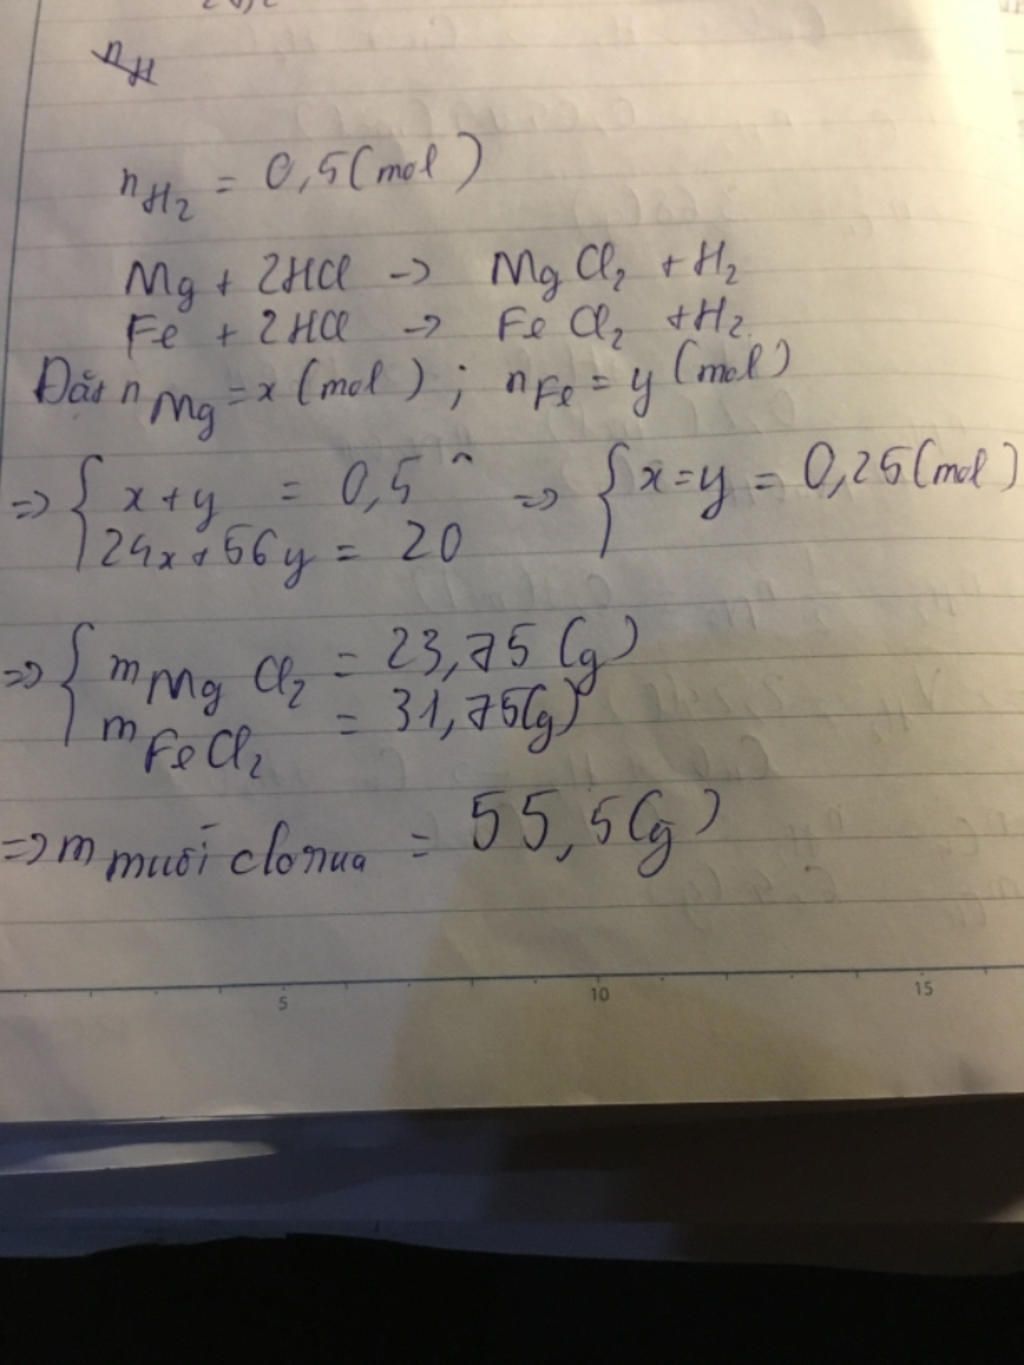 nH
nH₂ = 0,5(mol)
Mg + 2HCl -> MgCl₂ + H₂
Fe + 2HCl -> FeCl₂ + H₂
Đặt nMg = x (mol) ; nFe = y (mol)
=> { x + y = 0,5 => { x = y = 0,25(mol)
24x + 56y = 20
=> { mMgCl₂ = 23,75 (g)
mFeCl₂ = 31,75(g)
=> m muối clorua = 55,5(g)
5 10 15